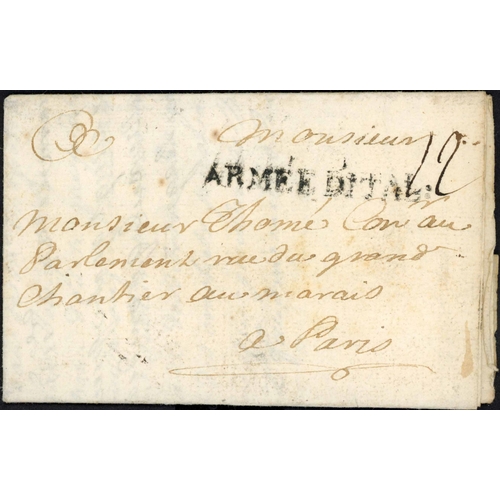 Monsieur
12
ARMÉE DITAL.
Monsieur Thomé Con.er au
Parlement rue du grand
Chantier au marais
a Paris